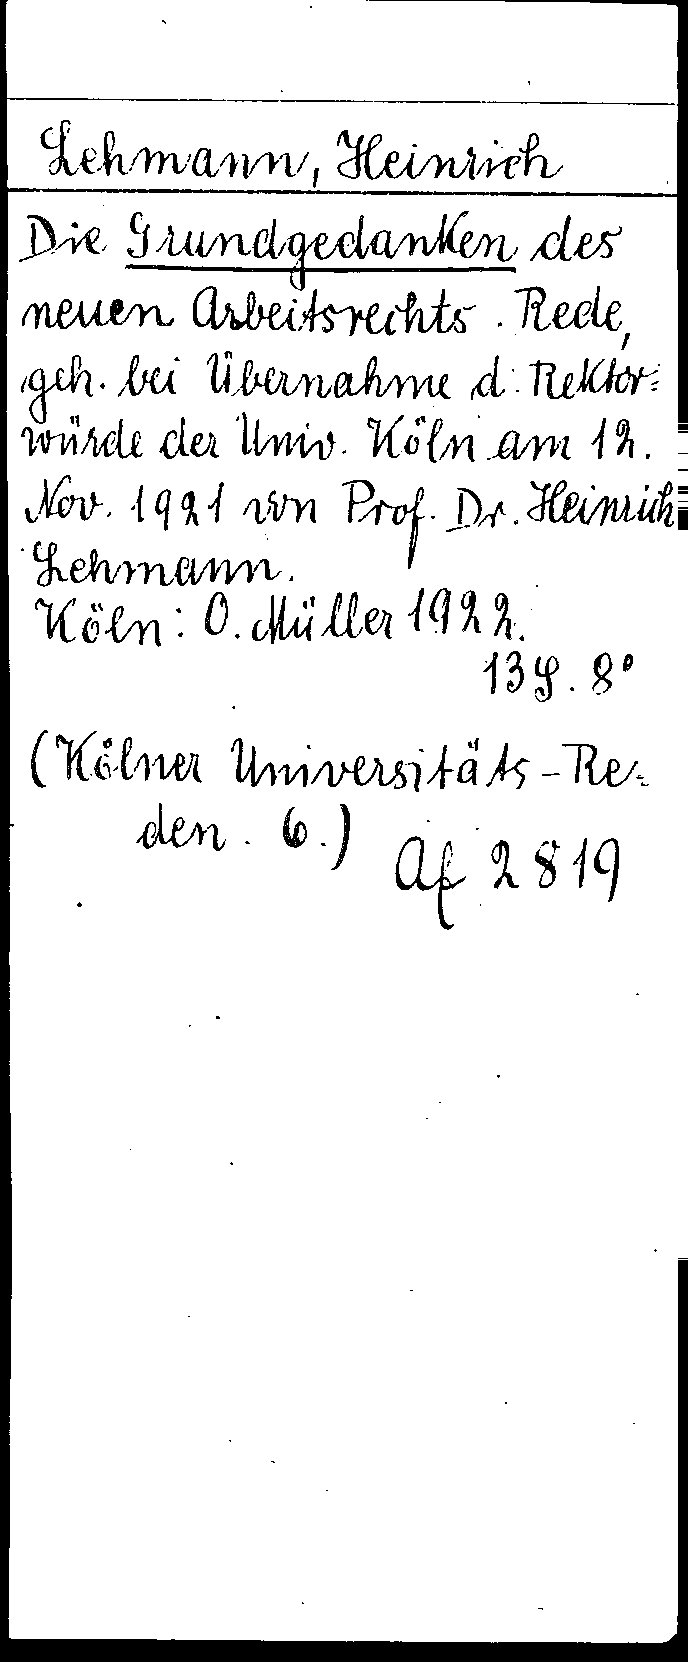 Lehmann, Heinrich
Die Grundgedanken des
neuen Arbeitsrechts. Rede,
geh. bei Übernahme d. Rektor-
würde der Univ. Köln am 12.
Nov. 1921 von Prof. Dr. Heinrich
Lehmann.
Köln: O. Müller 1922.
13 S. 8°
(Kölner Universitäts-Re-
den. 6.)
Af 2819